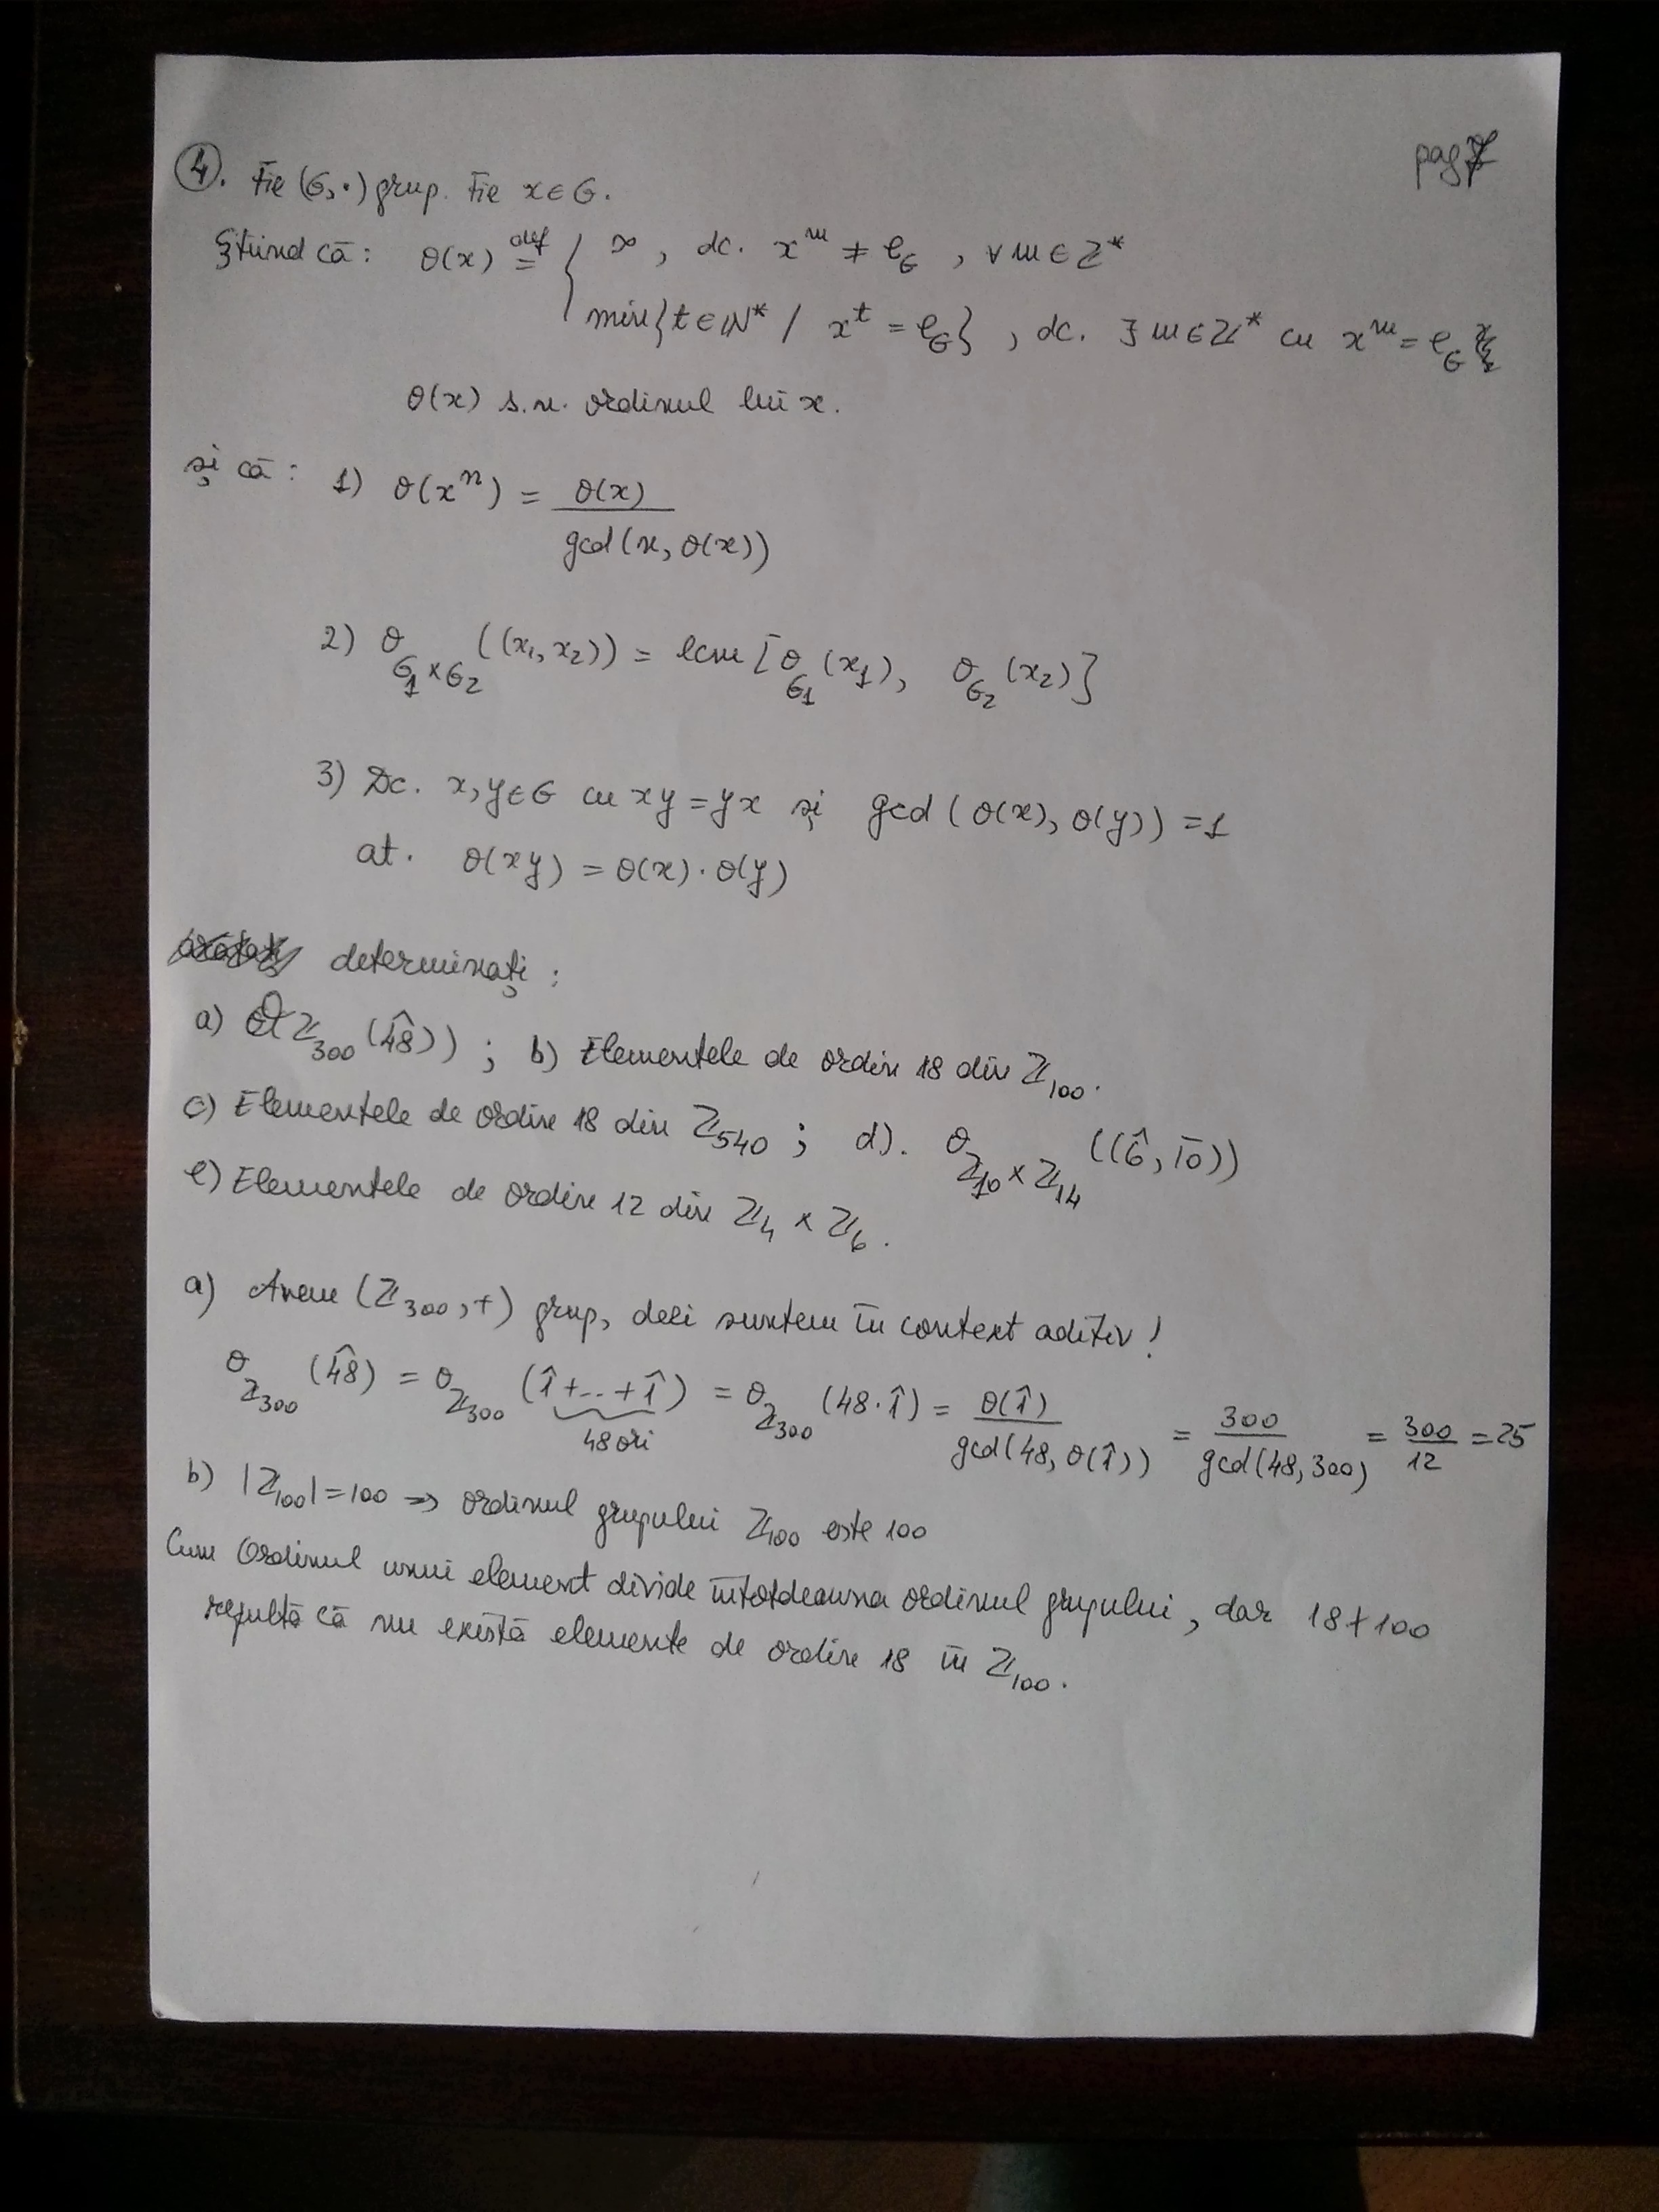 pag 7
4. Fie (G,·) grup. Fie x ∈ G.
Știind că: θ(x) def= { ∞, dc. x^m ≠ e_G, ∀ m ∈ Z*
min{t ∈ N* / x^t = e_G}, dc. ∃ m ∈ Z* cu x^m = e_G
θ(x) s.n. ordinul lui x.
și că: 1) θ(x^n) = θ(x) / gcd(n, θ(x))
2) θ_{G1×G2} ((x1, x2)) = lcm [θ_{G1}(x1), θ_{G2}(x2)]
3) Dc. x, y ∈ G cu xy = yx și gcd(θ(x), θ(y)) = 1
at. θ(xy) = θ(x)·θ(y)
determinați:
a) θ_{Z300}(48̂)); b) Elementele de ordin 18 din Z100.
c) Elementele de ordin 18 din Z540; d). θ_{Z10×Z14} ((6̂, 1̅0̅))
e) Elementele de ordin 12 din Z4 × Z6.
a) Avem (Z300, +) grup, deci suntem în context aditiv!
θ_{Z300}(48̂) = θ_{Z300}(1̂+...+1̂) [48 ori] = θ_{Z300}(48·1̂) = θ(1̂) / gcd(48, θ(1̂)) = 300 / gcd(48, 300) = 300/12 = 25
b) |Z100| = 100 => ordinul grupului Z100 este 100
Cum Ordinul unui element divide întotdeauna ordinul grupului, dar 18∤100
rezultă că nu există elemente de ordin 18 în Z100.